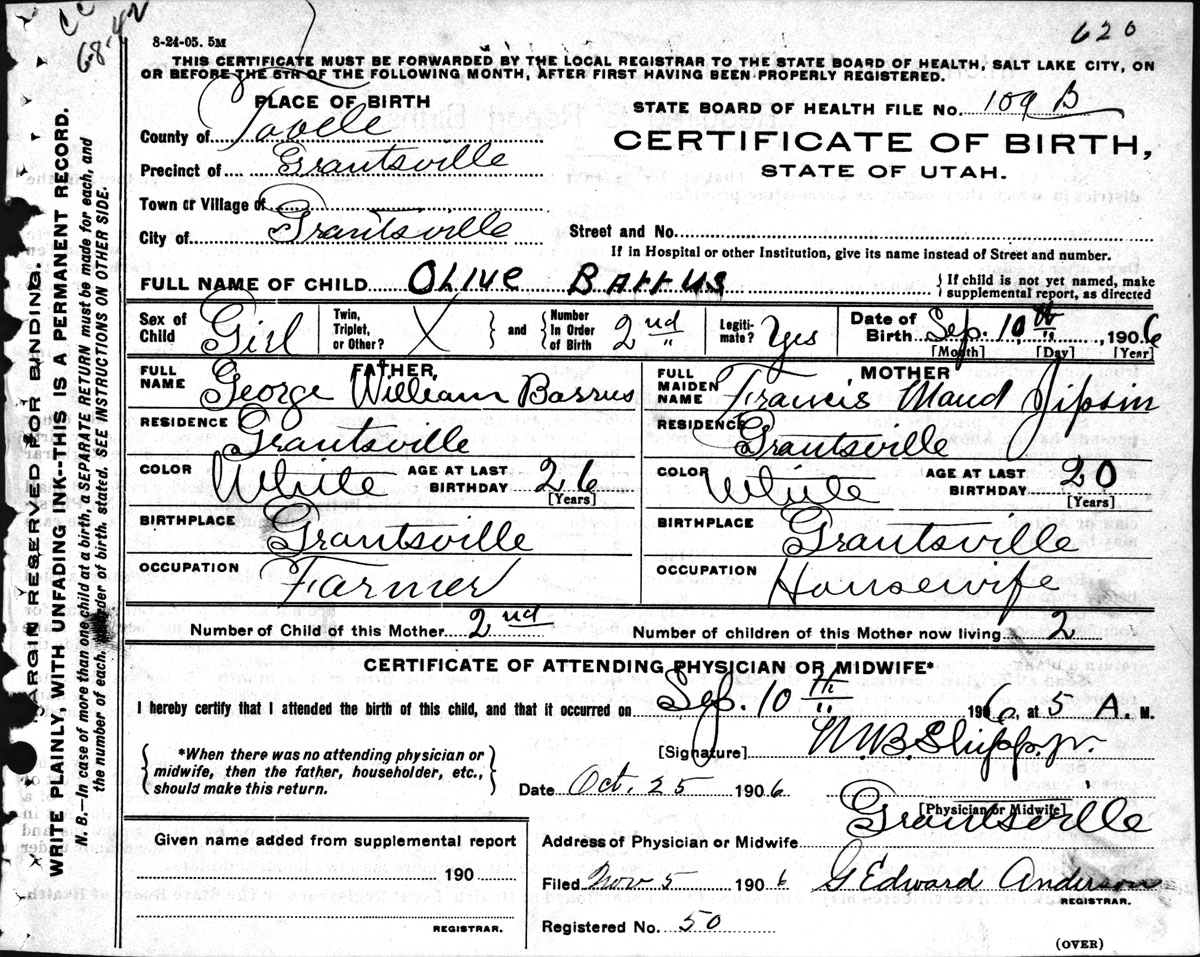 620
68-42
8-24-05. 5M
THIS CERTIFICATE MUST BE FORWARDED BY THE LOCAL REGISTRAR TO THE STATE BOARD OF HEALTH, SALT LAKE CITY, ON
OR BEFORE THE 5TH OF THE FOLLOWING MONTH, AFTER FIRST HAVING BEEN PROPERLY REGISTERED.
PLACE OF BIRTH
STATE BOARD OF HEALTH FILE No. 109 B
County of Tooele
CERTIFICATE OF BIRTH,
Precinct of Grantsville
STATE OF UTAH.
Town or Village of
City of Grantsville
Street and No.
If in Hospital or other Institution, give its name instead of Street and number.
FULL NAME OF CHILD Olive Barrus { If child is not yet named, make
supplemental report, as directed
Sex of Child Girl Twin, Triplet, or Other? X } and { Number In Order of Birth 2nd Legiti-mate? Yes Date of Birth Sep. 10th, 1906
[Month] [Day] [Year]
FATHER
MOTHER
FULL NAME George William Barrus
FULL MAIDEN NAME Francis Maud
RESIDENCE Grantsville
RESIDENCE Grantsville
COLOR White AGE AT LAST BIRTHDAY 26 [Years]
COLOR White AGE AT LAST BIRTHDAY 20 [Years]
BIRTHPLACE Grantsville
BIRTHPLACE Grantsville
OCCUPATION Farmer
OCCUPATION Housewife
Number of Child of this Mother 2nd
Number of children of this Mother now living 2
CERTIFICATE OF ATTENDING PHYSICIAN OR MIDWIFE*
I hereby certify that I attended the birth of this child, and that it occurred on Sep. 10th 1906, at 5 A. M.
{ *When there was no attending physician or
midwife, then the father, householder, etc.,
should make this return. }
[Signature] Shipp jr.
Date Oct. 25 1906
[Physician or Midwife]
Address of Physician or Midwife Grantsville
Filed Nov 5 1906 G Edward Anderson
REGISTRAR.
Registered No. 50
Given name added from supplemental report
190
REGISTRAR.
(OVER)
MARGIN RESERVED FOR BINDING.
WRITE PLAINLY, WITH UNFADING INK--THIS IS A PERMANENT RECORD.
N. B.--In case of more than one child at a birth, a SEPARATE RETURN must be made for each, and
the number of each, in order of birth, stated. SEE INSTRUCTIONS ON OTHER SIDE.